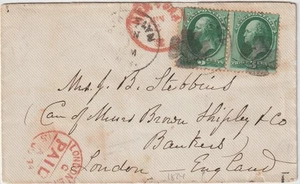 NEW YORK
PAID
LONDON
Mrs J. B. Stebbins
(Care of Messrs Brown Shipley & Co
Bankers)
London England